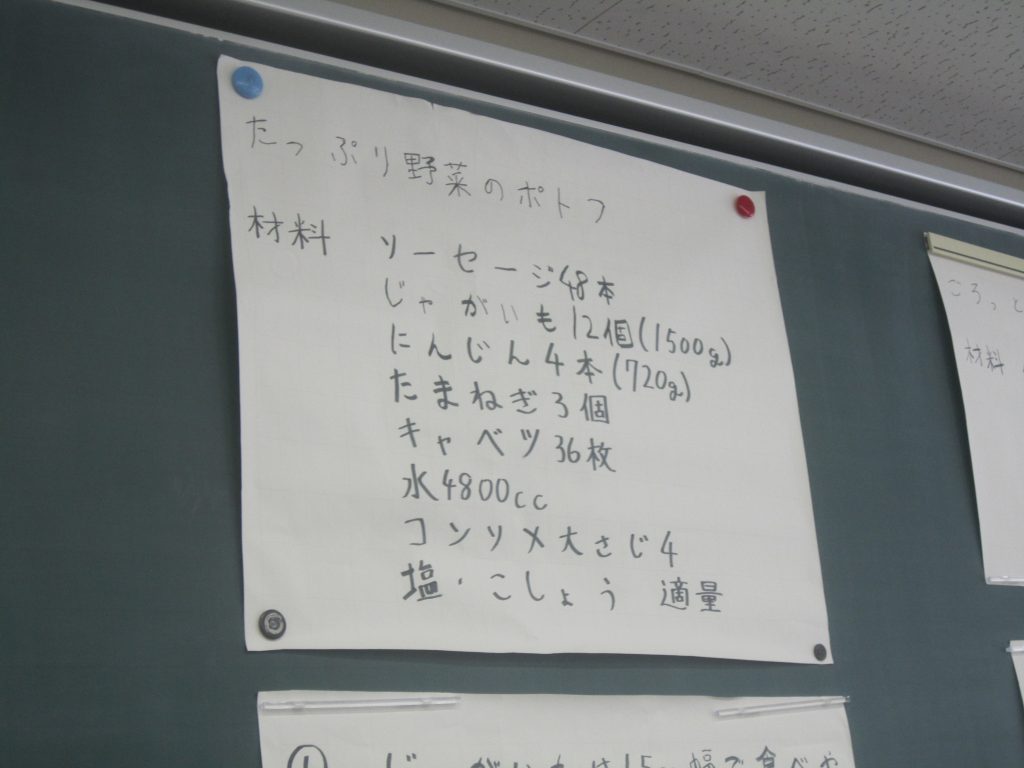 たっぷり野菜のポトフ
材料
ソーセージ48本
じゃがいも12個(1500g)
にんじん4本(720g)
たまねぎ3個
キャベツ36枚
水4800cc
コンソメ大さじ4
塩・こしょう 適量
ころっと
材料
① じゃがいもは1.5cm幅で食べや